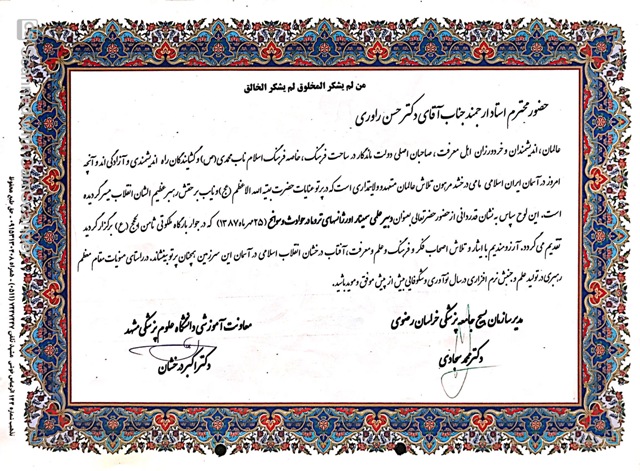 من لم یشکر المخلوق لم یشکر الخالق
حضور محترم استاد ارجمند جناب آقای دکتر حسن راوری
عالمان، اندیشمندان و خردورزان اهل معرفت، صاحبان اصلی دولت ماندگار در ساحت فرهنگ، خاصه فرهنگ اسلام ناب محمدی (ص) و گشایندگان راه اندیشمندی و آزادگی اند و آنچه
امروز در آسمان ایران اسلامی ما می درخشد مرهون تلاش عالمان متعهد و ولایتمداری است که در پرتو عنایات حضرت بقیه الله الاعظم (عج) و نایب بر حقش رهبر عظیم الشان انقلاب میسر گردیده
است، این لوح سپاس به نشان قدردانی از حضور حضرتعالی بعنوان دبیر علمی سمینار اورژانسهای تروما در حوادث و سوانح (۲۵ مهرماه ۱۳۸۷) که در جوار بارگاه ملکوتی ثامن الحجج (ع) برگزار گردید
تقدیم می گردد. آرزومندیم با ایثار و تلاش اصحاب فکر و فرهنگ و علم و معرفت، آفتاب درخشان انقلاب اسلامی در آسمان این سرزمین همچنان پرتو بیفشاند. در راستای منویات مقام معظم
رهبری در تولید علم و جنبش نرم افزاری در سال نوآوری و شکوفایی بیش از پیش موفق و موید باشید.
مدیر سازمان بسیج جامعه پزشکی خراسان رضوی
دکتر محمد سجادی
معاونت آموزشی دانشگاه علوم پزشکی مشهد
دکتر اکبر درخشان